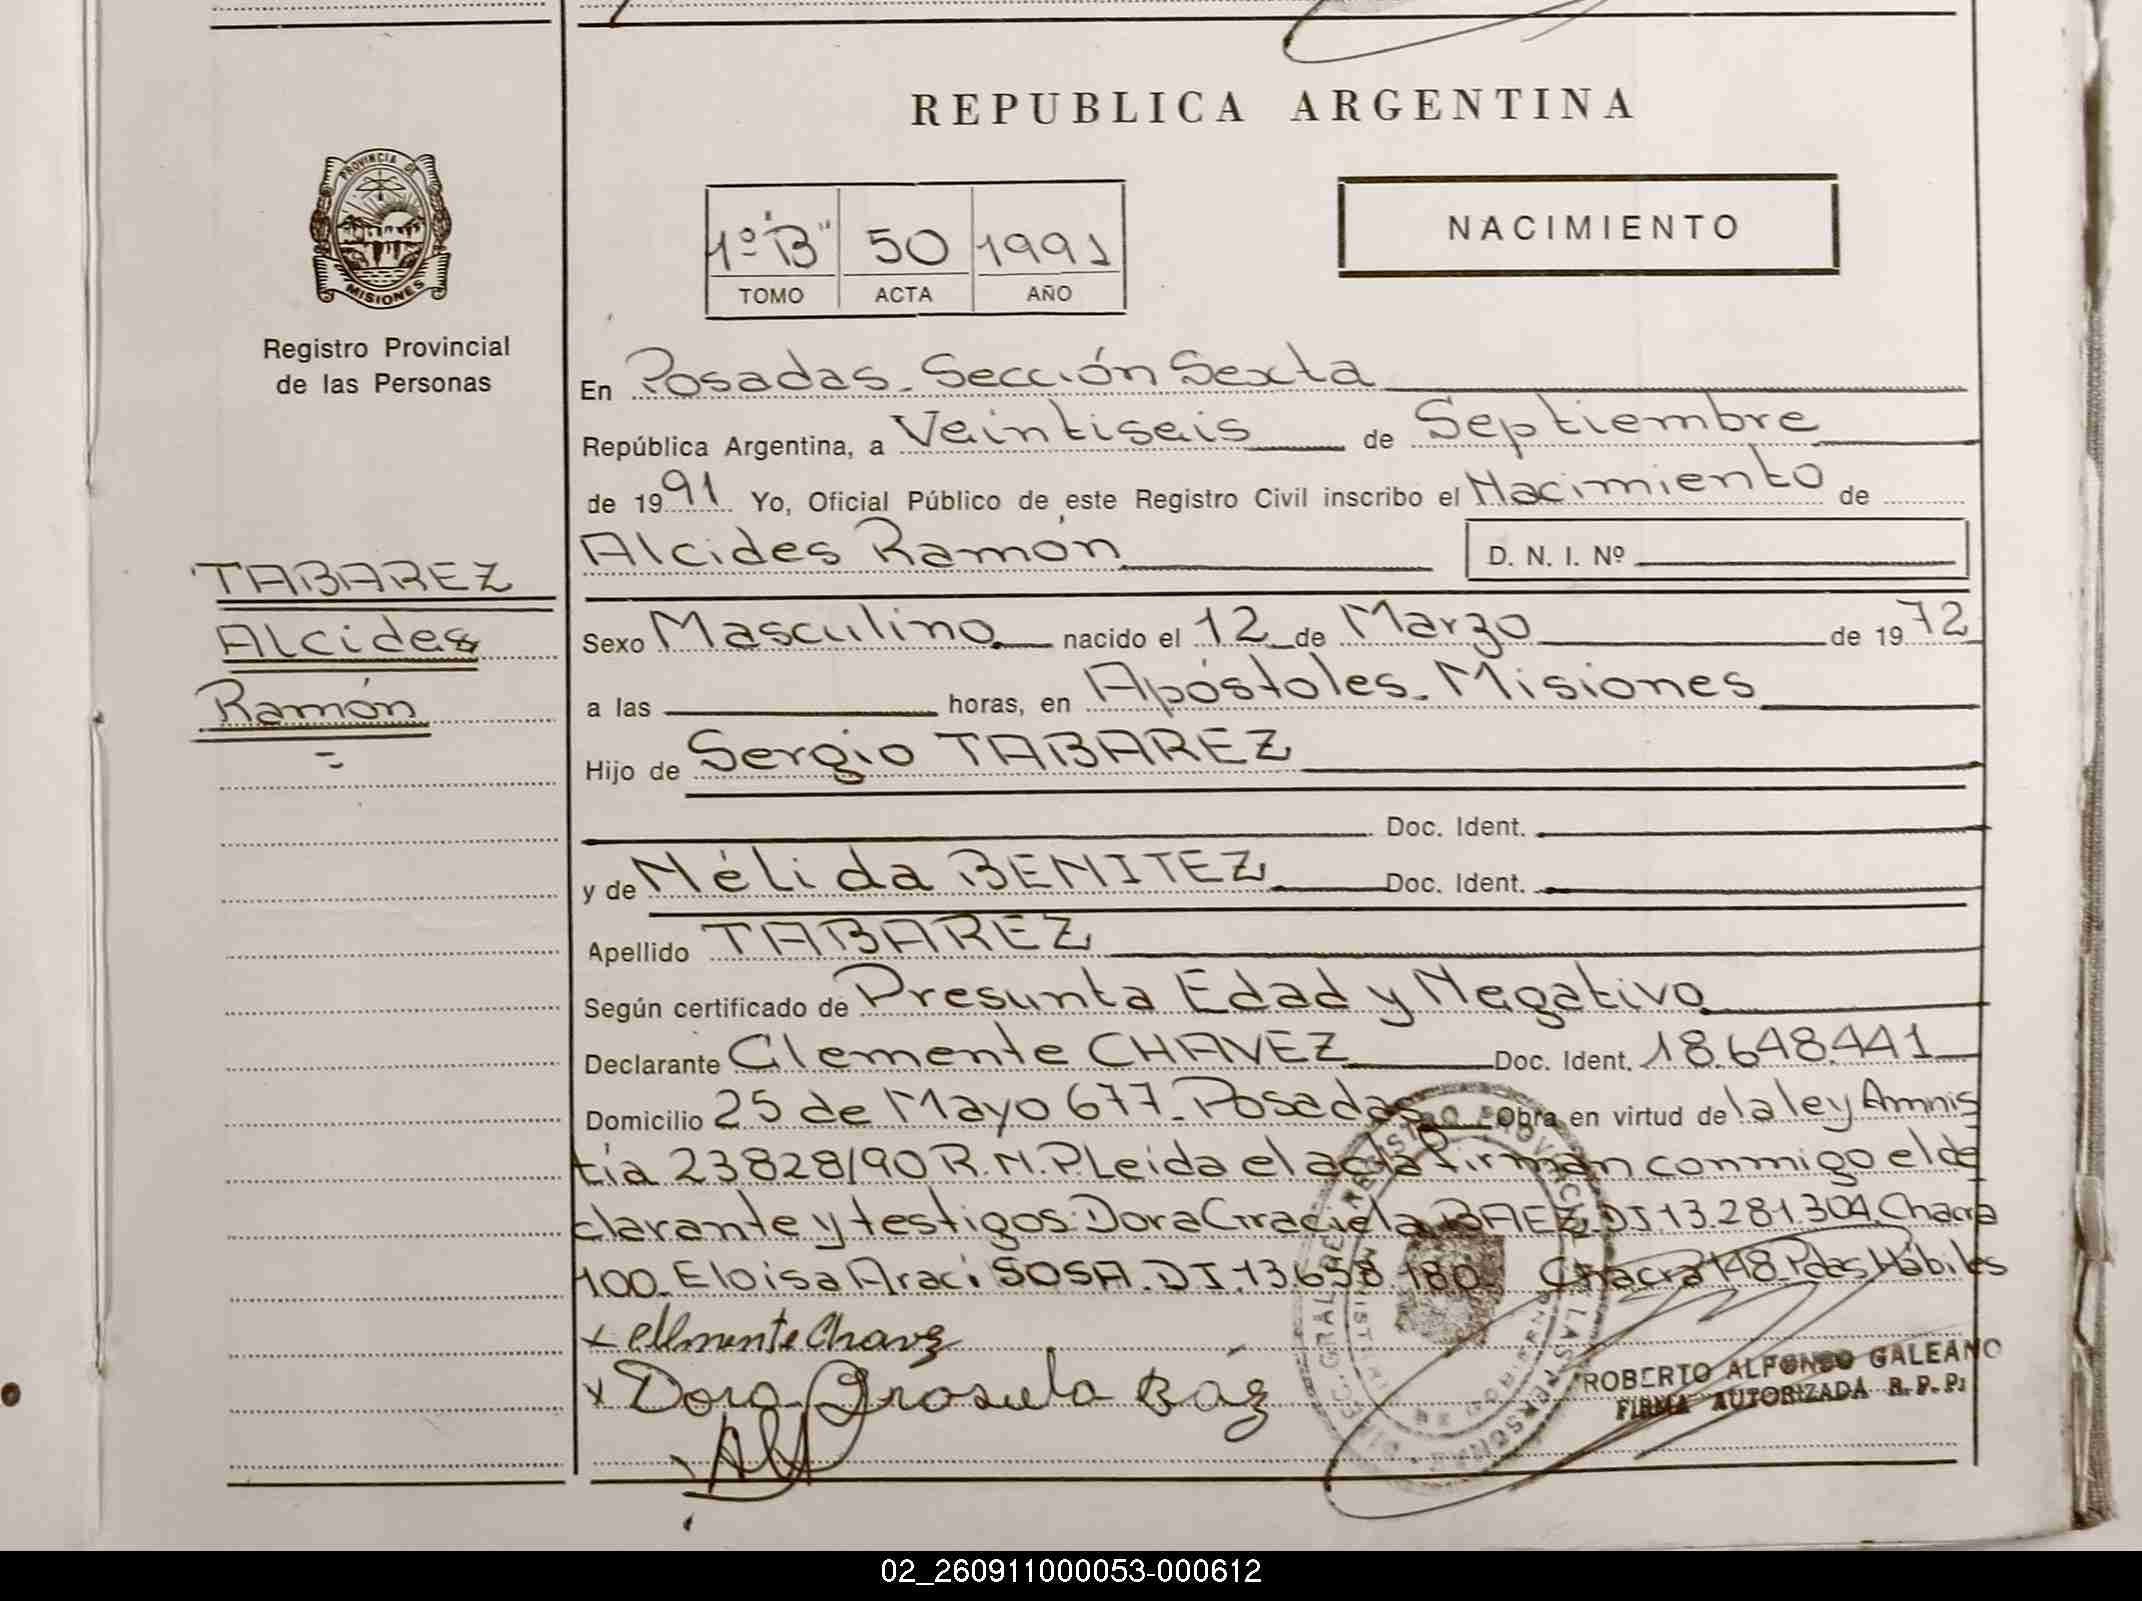 REPUBLICA ARGENTINA
PROVINCIA DE
MISIONES
Registro Provincial
de las Personas
NACIMIENTO
1º "B" 50 1991
TOMO ACTA AÑO
En Posadas - Sección Sexta
República Argentina, a Veintiseis de Septiembre
de 1991 Yo, Oficial Público de este Registro Civil inscribo el Nacimiento de
Alcides Ramón D. N. I. Nº
TABAREZ
Alcides
Ramón
Sexo Masculino nacido el 12 de Marzo de 1972
a las horas, en Apóstoles - Misiones
Hijo de Sergio TABAREZ
Doc. Ident.
y de Nélida BENITEZ Doc. Ident.
Apellido TABAREZ
Según certificado de Presunta Edad y Negativo
Declarante Clemente CHAVEZ Doc. Ident. 18.648.441
Domicilio 25 de Mayo 677 - Posadas Obra en virtud de la ley Amnis
tía 23828/90 R.N.P. Leída el acta firman conmigo el de
clarante y testigos: Dora Graciela BAEZ DI 13.281.304 Chacra
100 - Eloisa Araci SOSA . DI . 13.658.180 - Chacra 148 Pdas Hábiles
x Clemente Chavez
x Dora Graciela Báz
ROBERTO ALFONSO GALEANO
FIRMA AUTORIZADA R. P. P.
02_260911000053-000612